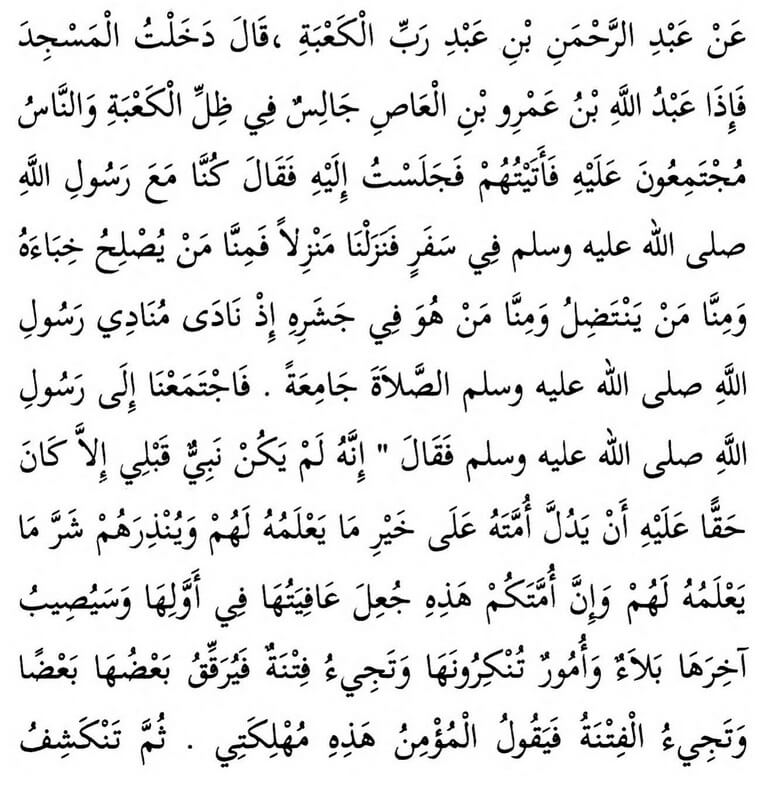 عَنْ عَبْدِ الرَّحْمَنِ بْنِ عَبْدِ رَبِّ الْكَعْبَةِ ،قَالَ دَخَلْتُ الْمَسْجِدَ
فَإِذَا عَبْدُ اللَّهِ بْنُ عَمْرِو بْنِ الْعَاصِ جَالِسٌ فِي ظِلِّ الْكَعْبَةِ وَالنَّاسُ
مُجْتَمِعُونَ عَلَيْهِ فَأَتَيْتُهُمْ فَجَلَسْتُ إِلَيْهِ فَقَالَ كُنَّا مَعَ رَسُولِ اللَّهِ
صلى الله عليه وسلم فِي سَفَرٍ فَنَزَلْنَا مَنْزِلاً فَمِنَّا مَنْ يُصْلِحُ خِبَاءَهُ
وَمِنَّا مَنْ يَنْتَضِلُ وَمِنَّا مَنْ هُوَ فِي جَشَرِهِ إِذْ نَادَى مُنَادِي رَسُولِ
اللَّهِ صلى الله عليه وسلم الصَّلاَةَ جَامِعَةً . فَاجْتَمَعْنَا إِلَى رَسُولِ
اللَّهِ صلى الله عليه وسلم فَقَالَ " إِنَّهُ لَمْ يَكُنْ نَبِيٌّ قَبْلِي إِلاَّ كَانَ
حَقًّا عَلَيْهِ أَنْ يَدُلَّ أُمَّتَهُ عَلَى خَيْرِ مَا يَعْلَمُهُ لَهُمْ وَيُنْذِرَهُمْ شَرَّ مَا
يَعْلَمُهُ لَهُمْ وَإِنَّ أُمَّتَكُمْ هَذِهِ جُعِلَ عَافِيَتُهَا فِي أَوَّلِهَا وَسَيُصِيبُ
آخِرَهَا بَلاَءٌ وَأُمُورٌ تُنْكِرُونَهَا وَتَجِيءُ فِتْنَةٌ فَيُرَقِّقُ بَعْضُهَا بَعْضًا
وَتَجِيءُ الْفِتْنَةُ فَيَقُولُ الْمُؤْمِنُ هَذِهِ مُهْلِكَتِي . ثُمَّ تَنْكَشِفُ